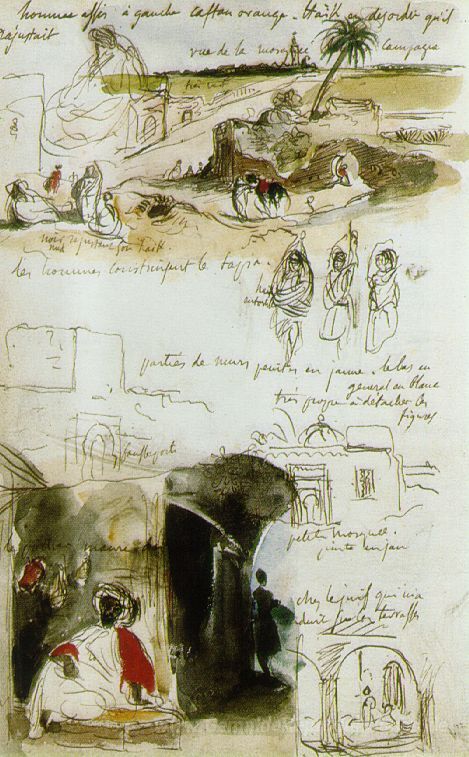 homme assis à gauche caftan orange. Haïk en desordre qu'il
rajustait
vue de la mosquée campagne
très vert
noir rajustant son haïk.
nud
les hommes construisant le
parties de murs peintes en jaune. le bas en
general en blanc
très propre à détacher les
figures
fausse porte
petite mosquée.
peinte en jaune
chez le juif qui m'a
conduit sur les terrasses